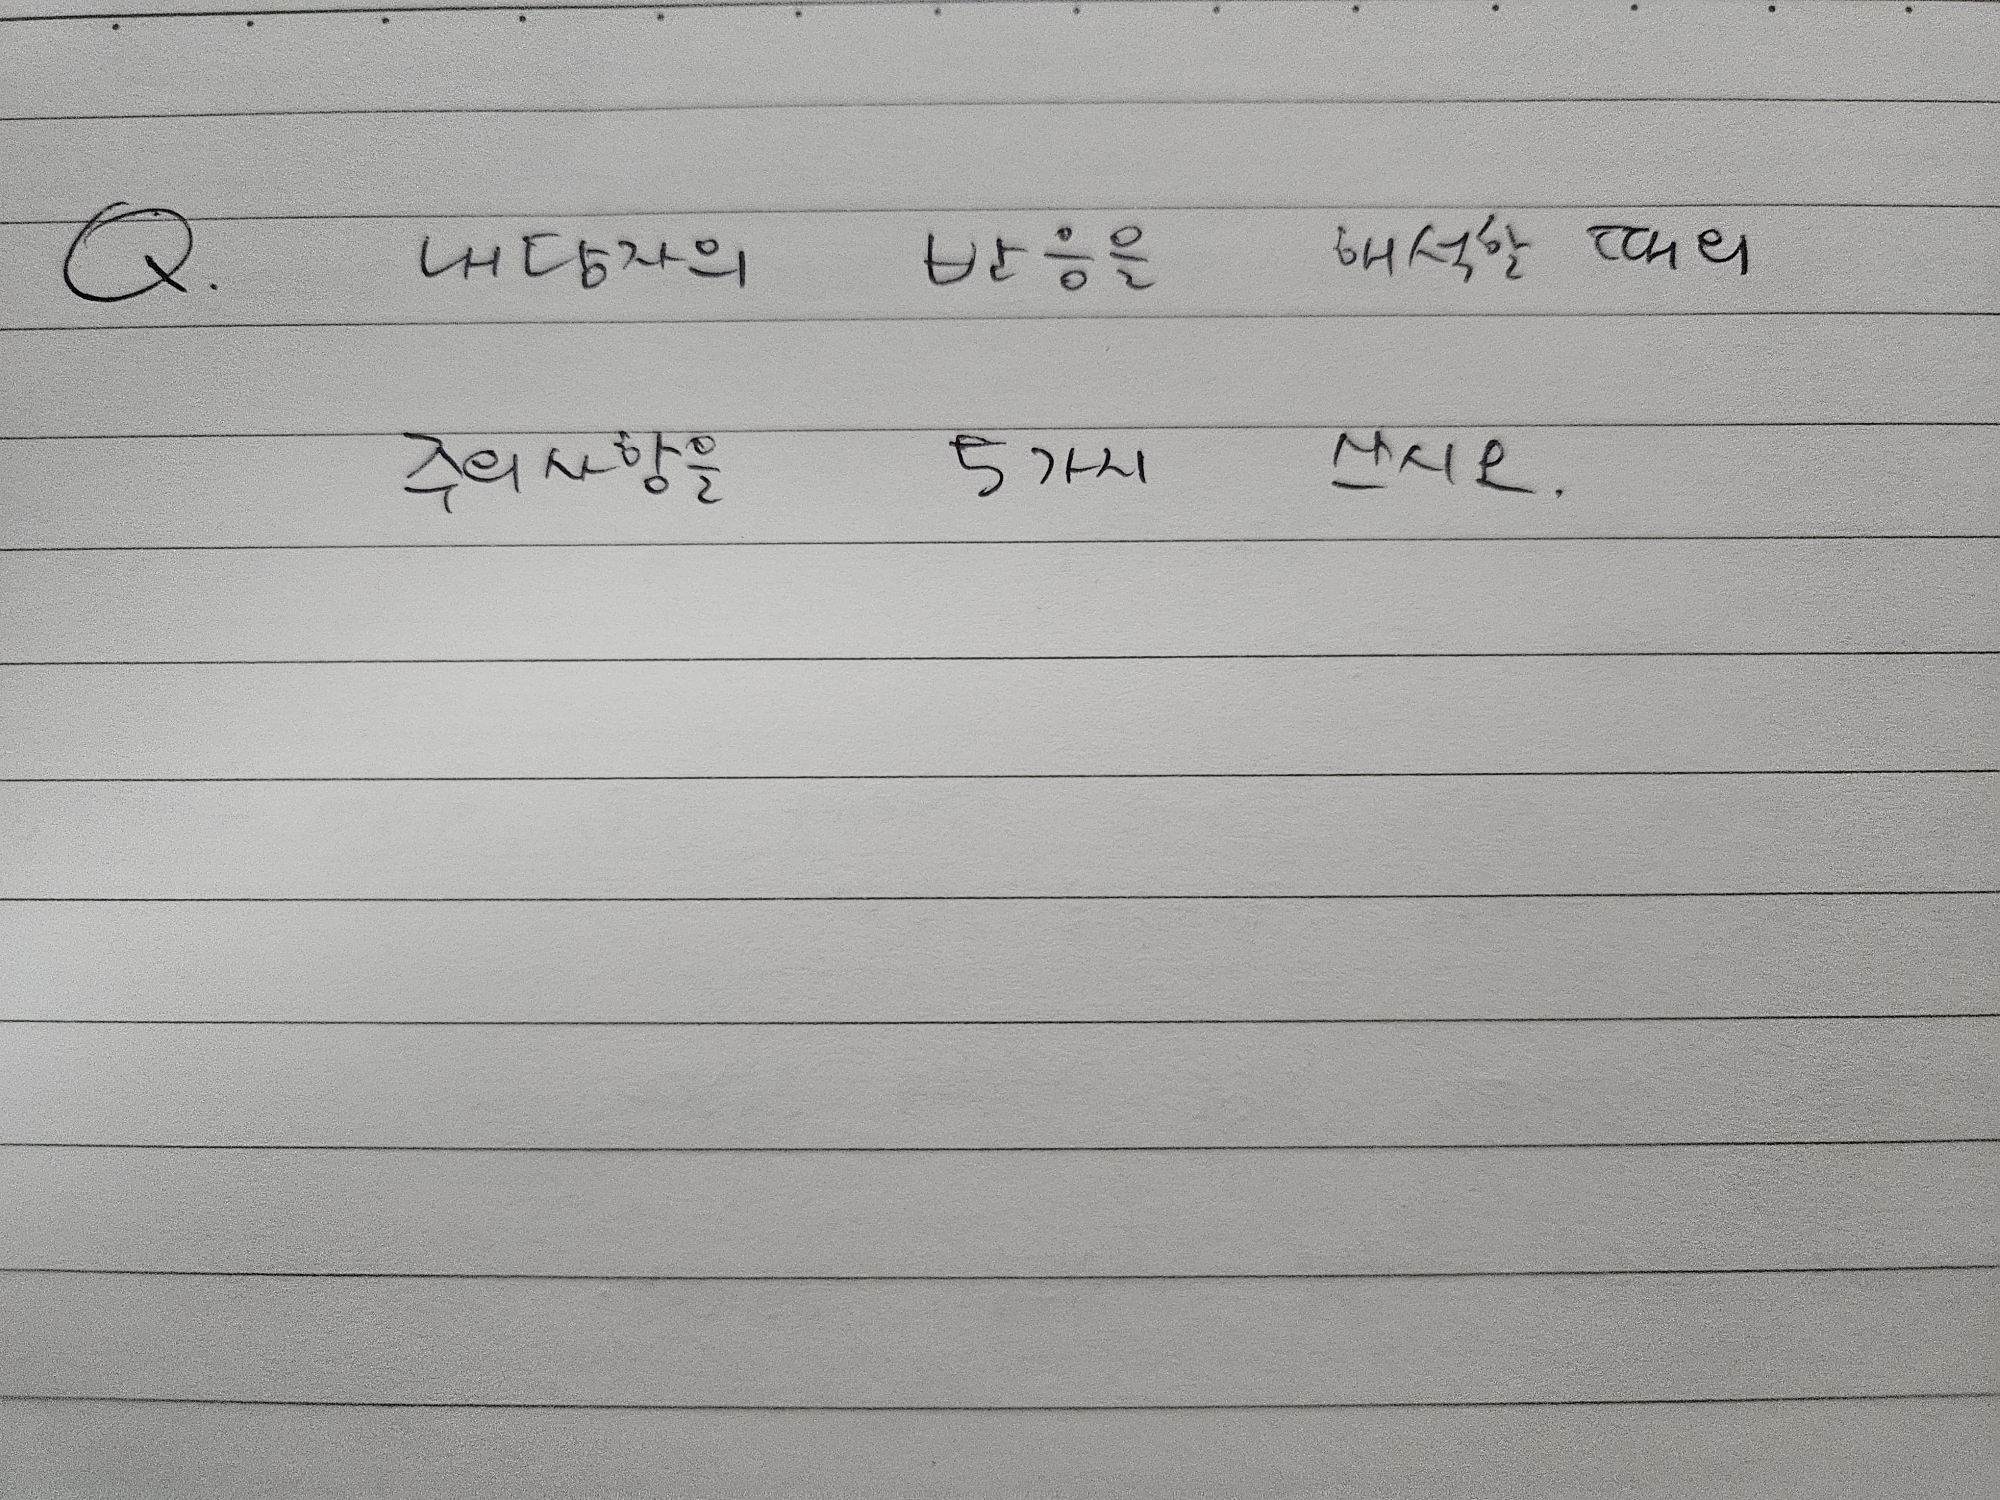 Q. 내담자의 반응을 해석할 때의
주의사항을 5가지 쓰시오.